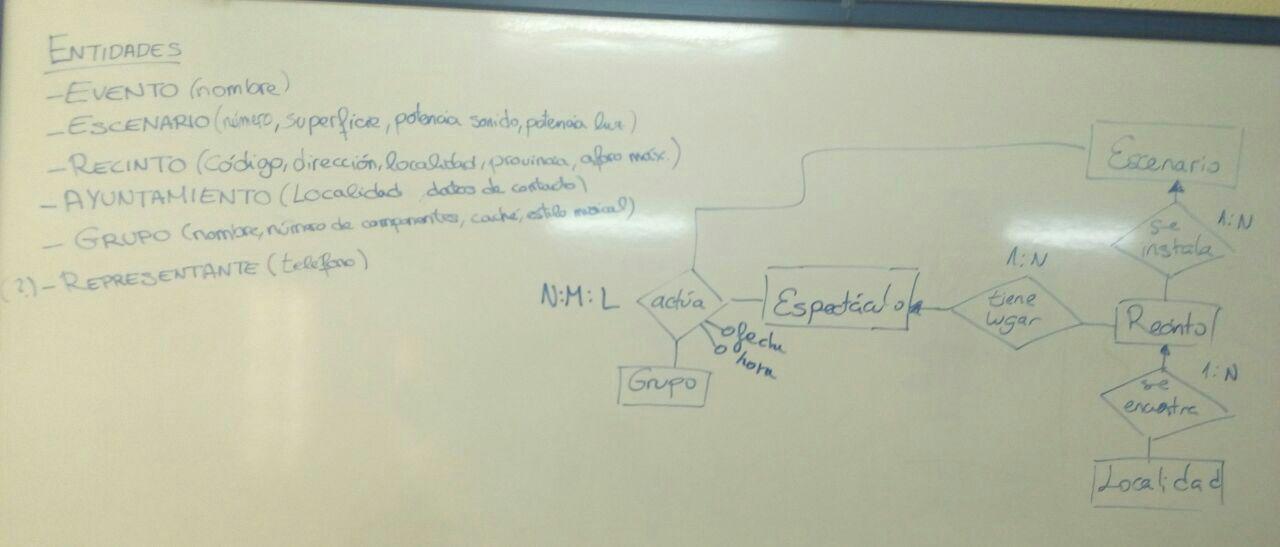 ENTIDADES
- EVENTO (nombre)
- ESCENARIO (número, superficie, potencia sonido, potencia luz)
- RECINTO (Código, dirección, localidad, provincia, aforo máx.)
- AYUNTAMIENTO (Localidad, datos de contacto)
- GRUPO (nombre, número de componentes, caché, estilo musical)
(?) - REPRESENTANTE (teléfono)
Escenario
1:N
se
instala
1:N
N:M:L
actúa
Espectáculo
tiene
lugar
Recinto
fecha
hora
Grupo
1:N
se
encuentra
Localidad